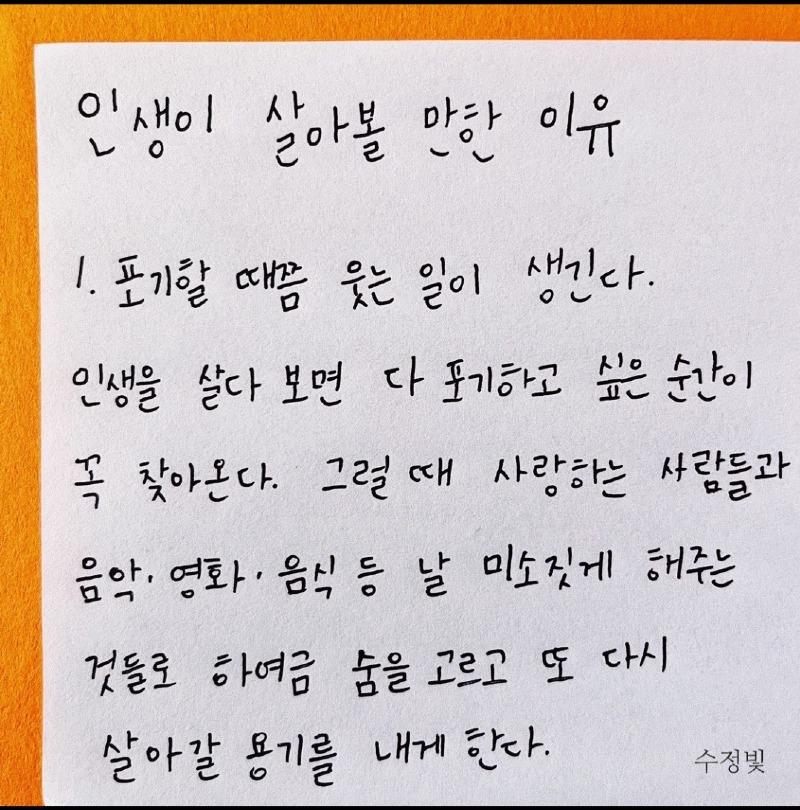 인생이 살아볼 만한 이유
1. 포기할 때쯤 웃는 일이 생긴다.
인생을 살다 보면 다 포기하고 싶은 순간이
꼭 찾아온다. 그럴 때 사랑하는 사람들과
음악·영화·음식 등 날 미소짓게 해주는
것들로 하여금 숨을 고르고 또 다시
살아갈 용기를 내게 한다.
수정빛